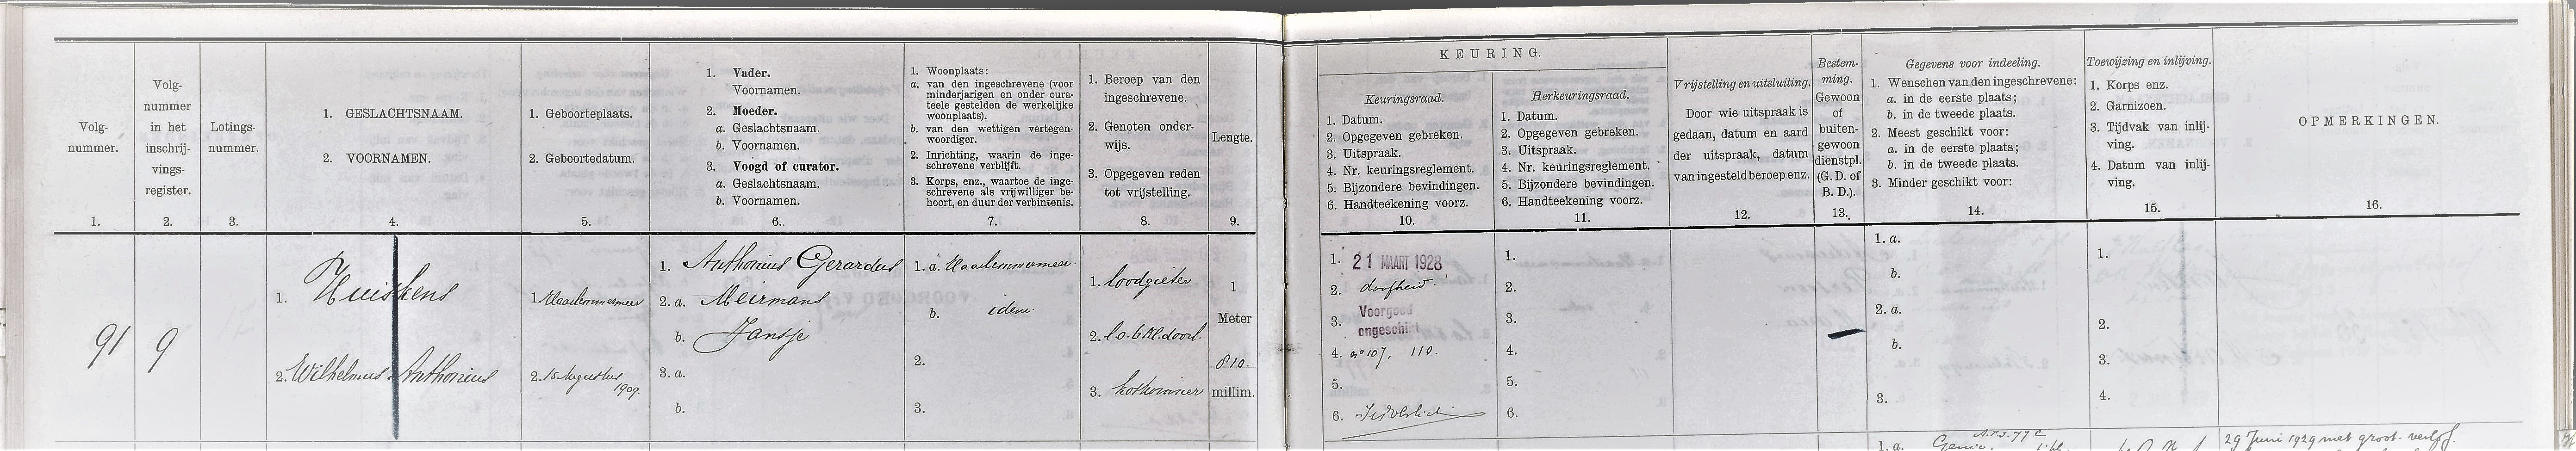 Volg-
nummer.
1.
Volg-
nummer
in het
inschrij-
vings-
register.
2.
Lotings-
nummer.
3.
1. GESLACHTSNAAM.
2. VOORNAMEN.
4.
1. Geboorteplaats.
2. Geboortedatum.
5.
1. Vader.
Voornamen.
2. Moeder.
a. Geslachtsnaam.
b. Voornamen.
3. Voogd of curator.
a. Geslachtsnaam.
b. Voornamen.
6.
1. Woonplaats:
a. van den ingeschrevene (voor
minderjarigen en onder cura-
teele gestelden de werkelijke
woonplaats).
b. van den wettigen vertegen-
woordiger.
2. Inrichting, waarin de inge-
schrevene verblijft.
3. Korps, enz., waartoe de inge-
schrevene als vrijwilliger be-
hoort, en duur der verbintenis.
7.
1. Beroep van den
ingeschrevene.
2. Genoten onder-
wijs.
3. Opgegeven reden
tot vrijstelling.
8.
Lengte.
9.
KEURING.
Keuringsraad.
1. Datum.
2. Opgegeven gebreken.
3. Uitspraak.
4. Nr. keuringsreglement.
5. Bijzondere bevindingen.
6. Handteekening voorz.
10.
Herkeuringsraad.
1. Datum.
2. Opgegeven gebreken.
3. Uitspraak.
4. Nr. keuringsreglement.
5. Bijzondere bevindingen.
6. Handteekening voorz.
11.
Vrijstelling en uitsluiting.
Door wie uitspraak is
gedaan, datum en aard
der uitspraak, datum
van ingesteld beroep enz.
12.
Bestem-
ming.
Gewoon
of
buiten-
gewoon
dienstpl.
(G.D. of
B.D.).
13.
Gegevens voor indeeling.
1. Wenschen van den ingeschrevene:
a. in de eerste plaats;
b. in de tweede plaats.
2. Meest geschikt voor:
a. in de eerste plaats;
b. in de tweede plaats.
3. Minder geschikt voor:
14.
Toewijzing en inlijving.
1. Korps enz.
2. Garnizoen.
3. Tijdvak van inlij-
ving.
4. Datum van inlij-
ving.
15.
OPMERKINGEN.
16.
91
9
1. Huiskens
2. Wilhelmus Anthonius
1. Haarlemmermeer
2. 15 Augustus
1909.
1. Anthonius Gerardus
2. a. Meirmans
b. Jansje
3. a.
b.
1. a. Haarlemmermeer
b. idem.
2.
3.
1. loodgieter
2. l.o. 6 kl. doorl.
3. kostwinner
1
Meter
810.
millim.
1. 21 MAART 1928
2. doofheid.
3. Voorgoed
ongeschikt
4. no 107, 110.
5.
6.
1.
2.
3.
4.
5.
6.
1. a.
b.
2. a.
b.
3.
1.
2.
3.
4.
1. a.
29 Juni 1929 met groot-verlof.